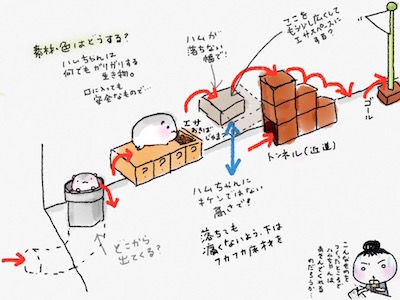 素材・色はどうする?
ハムちゃんは
何でもガリガリする
生き物。
口に入っても
安全なもので…
ハムが
落ちない
幅で!
ここを
もう少し広くして
エサスペースに
する?
エサ
あきばこ
じゃまっ
?
?
?
?
トンネル(近道)
ゴール
ハムちゃんに
キケンではない
高さで!
落ちても
痛くないよう、下は
フカフカ床材を
どこから
出てくる?
こんなせのを
つくったところで
ハムちゃんは
あそんでくれる
のだろうか…